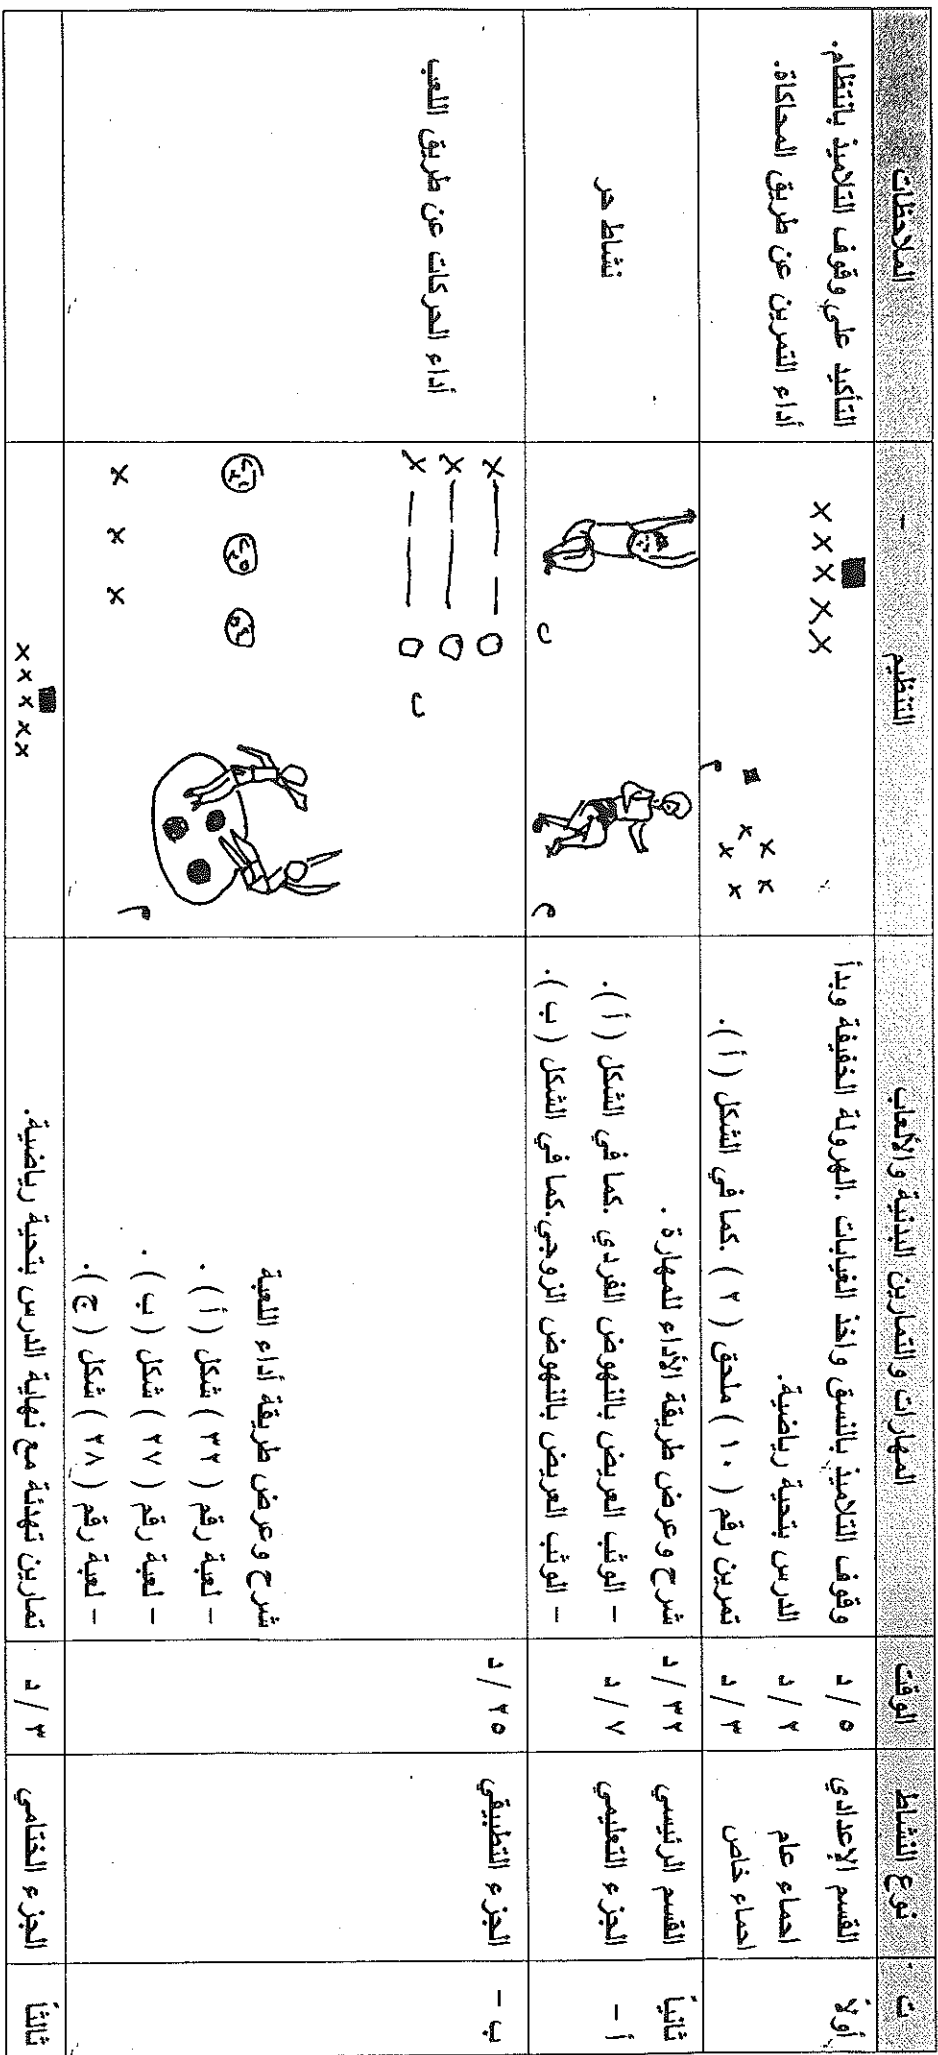 ت نوع النشاط الوقت المهارات والتمارين البدنية والألعاب التنظيم - الملاحظات
أولاً القسم الإعدادي ٥ / د وقوف التلاميذ بالنسق واخذ الغيابات .الهرولة الخفيفة وبدأ التأكيد على وقوف التلاميذ بانتظام.
احماء عام ٢ / د الدرس بتحية رياضية. أداء التمرين عن طريق المحاكاة.
احماء خاص ٣ / د تمرين رقم ( ١٠ ) ملحق ( ٢ ) .كما في الشكل ( أ ).
× × × × ×
× × × × ×
م
ثانياً القسم الرئيسي ٣٢ / د شرح وعرض طريقة الأداء للمهارة .
أ - الجزء التعليمي ٧ / د - الوثب العريض بالنهوض الفردي .كما في الشكل ( أ ). نشاط حر
- الوثب العريض بالنهوض الزوجي.كما في الشكل ( ب ).
م
ب
ب - الجزء التطبيقي ٢٥ / د أداء الحركات عن طريق اللعب
شرح وعرض طريقة أداء اللعبة
- لعبة رقم ( ٣٢ ) شكل ( أ ) .
- لعبة رقم ( ٢٧ ) شكل ( ب ) .
- لعبة رقم ( ٢٨ ) شكل ( ج ).
×
×
×
ب
× × ×
م
ثالثاً الجزء الختامي ٣ / د تمارين تهدئة مع نهاية الدرس بتحية رياضية.
× × × × ×